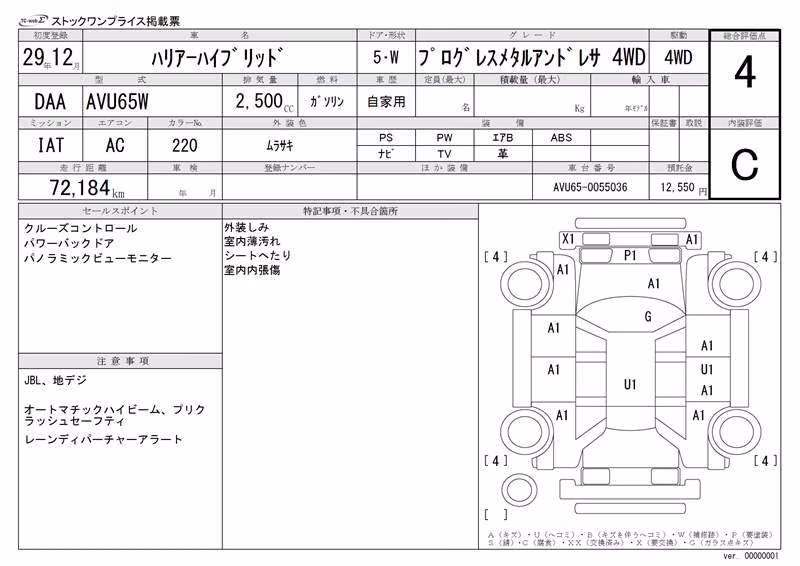 TC-webΣ ストックワンプライス掲載票
初度登録 車名 ドア・形状 グレード 駆動 総合評価点
29年12月 ハリアーハイブリッド 5・W プログレスメタルアンドレザ 4WD 4WD 4
型式 排気量 燃料 車歴 定員(最大) 積載量(最大) 輸入車
DAA AVU65W 2,500CC ガソリン 自家用 名 Kg 年モデル
ミッション エアコン カラーNo. 外装色 装備 保証書 取説 内装評価
IAT AC 220 ムラサキ PS PW エアB ABS C
ナビ TV 革
走行距離 車検 登録ナンバー ほか装備 車台番号 預託金
72,184km 年 月 AVU65-0055036 12,550円
セールスポイント
クルーズコントロール
パワーバックドア
パノラミックビューモニター
注意事項
JBL、地デジ
オートマチックハイビーム、プリク
ラッシュセーフティ
レーンディパーチャーアラート
特記事項・不具合箇所
外装しみ
室内薄汚れ
シートへたり
室内内張傷
X1 A1
[4] P1 [4]
A1 A1
G
A1 A1
A1 U1 U1
A1
A1 A1
[4] [4]
[ ]
A(キズ)・U(ヘコミ)・B(キズを伴うヘコミ)・W(補修跡)・P(要塗装)
S(錆)・C(腐食)・XX(交換済み)・X(要交換)・G(ガラス点キズ)
ver. 00000001